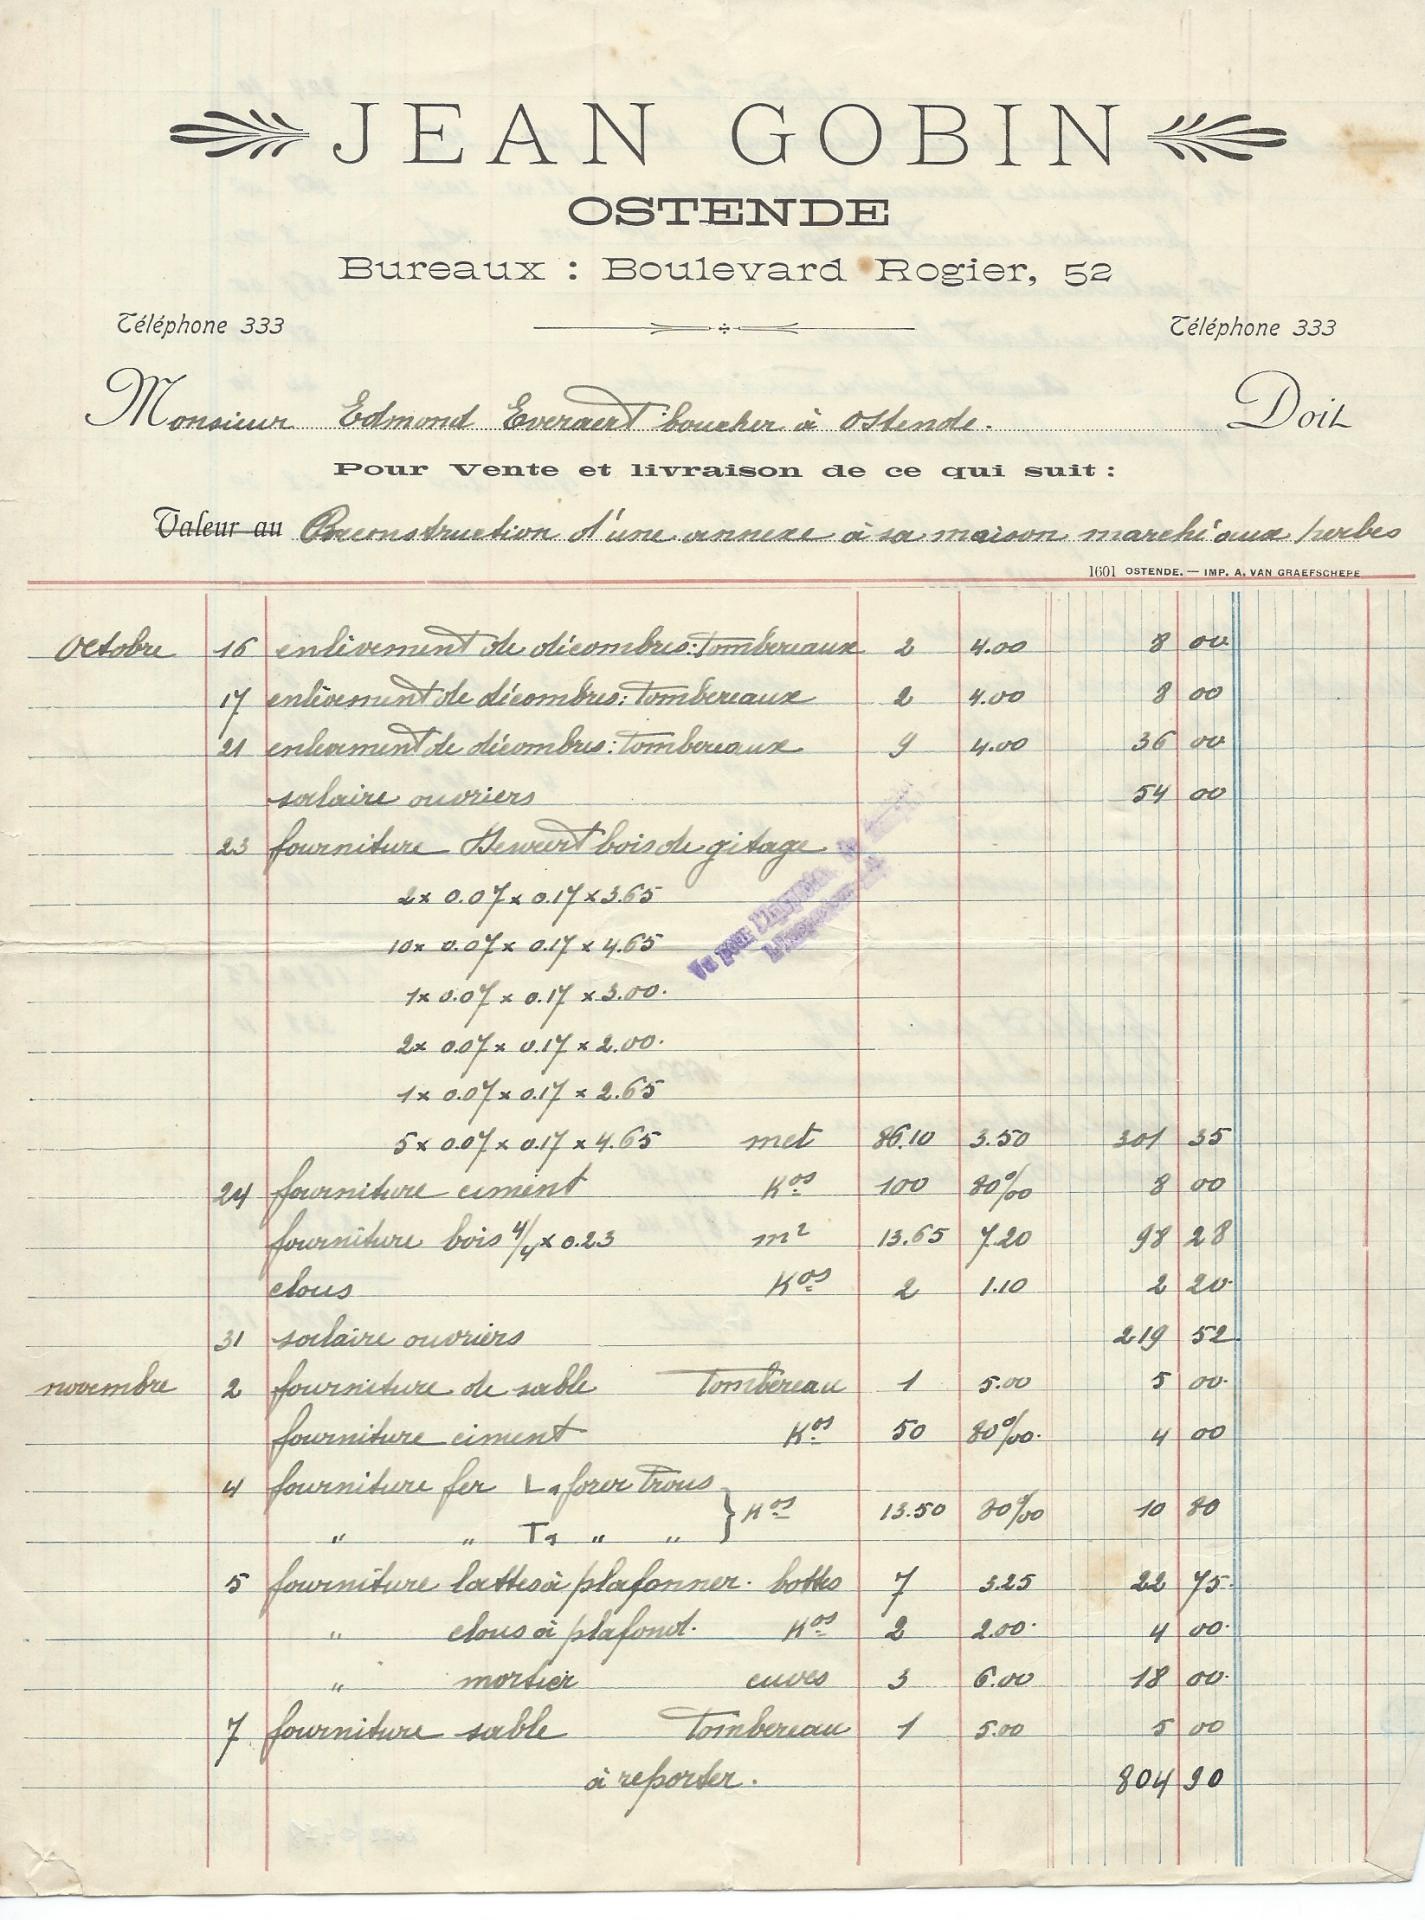 JEAN GOBIN
OSTENDE
Bureaux : Boulevard Rogier, 52
Téléphone 333 Téléphone 333
Monsieur Edmond Everaert boucher à Ostende. Doit
Pour Vente et livraison de ce qui suit :
Valeur au Reconstruction d'une annexe à sa maison marché aux herbes
1601 OSTENDE. — IMP. A. VAN GRAEFSCHEPE
Octobre 16 enlèvement de décombres: tombereaux 2 4.00 8 00
17 enlèvement de décombres: tombereaux 2 4.00 8 00
21 enlèvement de décombres: tombereaux 9 4.00 36 00
salaire ouvriers 54 00
23 fourniture bois de gitage
2 x 0.07 x 0.17 x 3.65
10 x 0.07 x 0.17 x 4.65
1 x 0.07 x 0.17 x 3.00.
2 x 0.07 x 0.17 x 2.00.
1 x 0.07 x 0.17 x 2.65
5 x 0.07 x 0.17 x 4.65 met 86.10 3.50 301 35
24 fourniture ciment Kos 100 80‰ 8 00
fourniture bois 4/4 x 0.23 m² 13.65 7.20 98 28
clous Kos 2 1.10 2 20
31 salaire ouvriers 219 52
novembre 2 fourniture de sable tombereau 1 5.00 5 00
fourniture ciment Kos 50 80‰ 4 00
4 fourniture fer L forer trous
" " T " " } Kos 13.50 80% 10 80
5 fourniture lattes à plafonner. bottes 7 3.25 22 75
" clous à plafond. Kos 2 2.00 4 00
" mortier cuves 3 6.00 18 00
7 fourniture sable tombereau 1 5.00 5 00
à reporter. 804 90
Vu pour l'Inspection